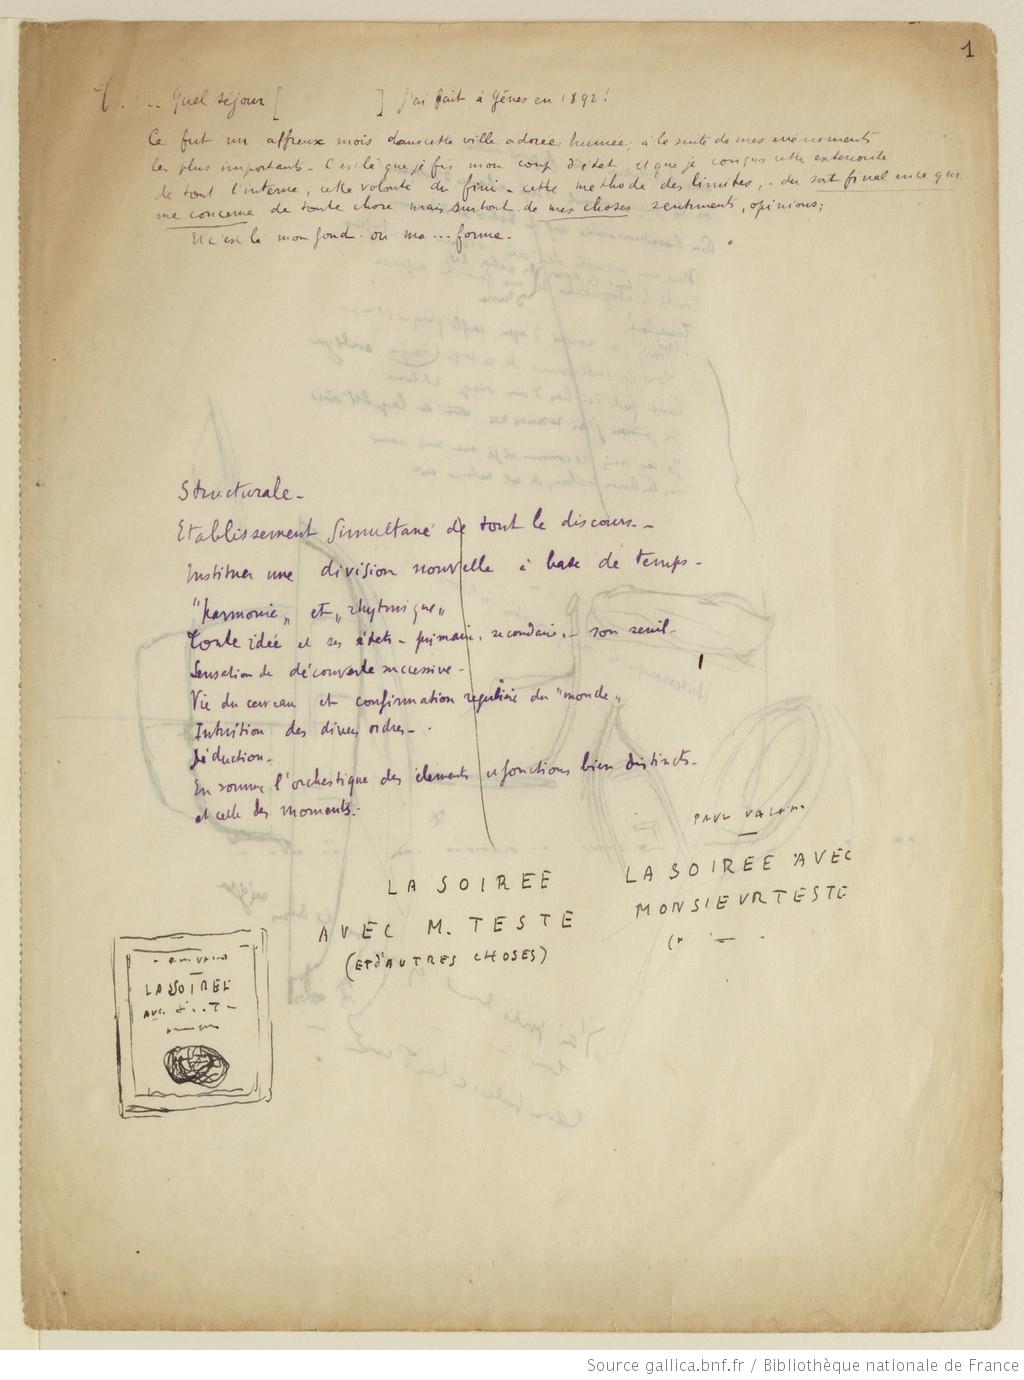 1
Quel séjour [ ] j'ai fait à Gênes en 1892 !
Ce fut un affreux mois dans cette ville adorée, humée, à la suite de mes événements
les plus importants. C'est là que je fis mon coup d'état et que je conçus cette extériorité
de tout l'interne, cette volonté du fini - cette méthode des limites, - du soit final en ce qui
me concerne de toute chose mais surtout de mes choses sentiments, opinions;
Et c'est là mon fond. ou ma ... forme.
Structurale -
Etablissement simultané de tout le discours. -
Instituer une division nouvelle à base de temps -
"harmonie" et "rhytmique"
Toute idée et ses états - primaire, secondaire, - son seuil -
Sensation de découverte successive -
Vie du cerveau et confirmation régulière du "monde"
Intuition des divers ordres -
Déduction -
En somme l'orchestique des éléments et fonctions bien distincts -
et celle des moments. -
PAUL VALERY
LA SOIREE AVEC
MONSIEUR TESTE
LA SOIREE
AVEC M. TESTE
(ET D'AUTRES CHOSES)
LA SOIREE
AVEC
Source gallica.bnf.fr / Bibliothèque nationale de France